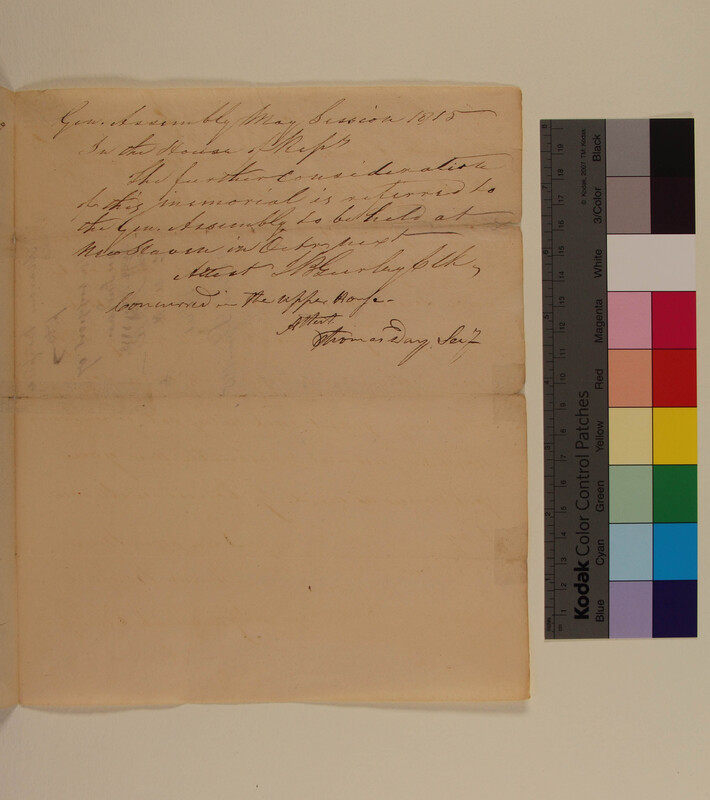 Gen. Assembly May Session 1815
In the House of Reps
The further consideration
of this memorial is referred to
the Gen. Assembly to be held at
New Haven in Octr next
Attest Gurley Clk
Concurred in the Upper House
Attest.
Thomas Day, Secy
Kodak Color Control Patches
© Kodak, 2007 TM: Kodak
Blue
Cyan
Green
Yellow
Red
Magenta
White
3/Color
Black
1 2 3 4 5 6 7 8 9 10 11 12 13 14 15 16 17 18 19